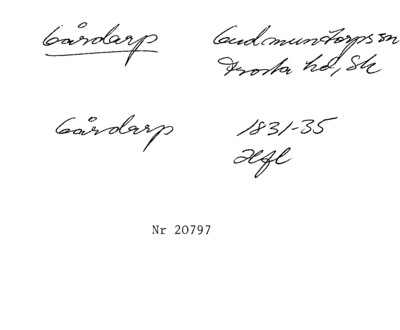 Gårdarp Gudmuntorps sn
Frosta hd, Sk
Gårdarp 1831-35
Hfl
Nr 20797